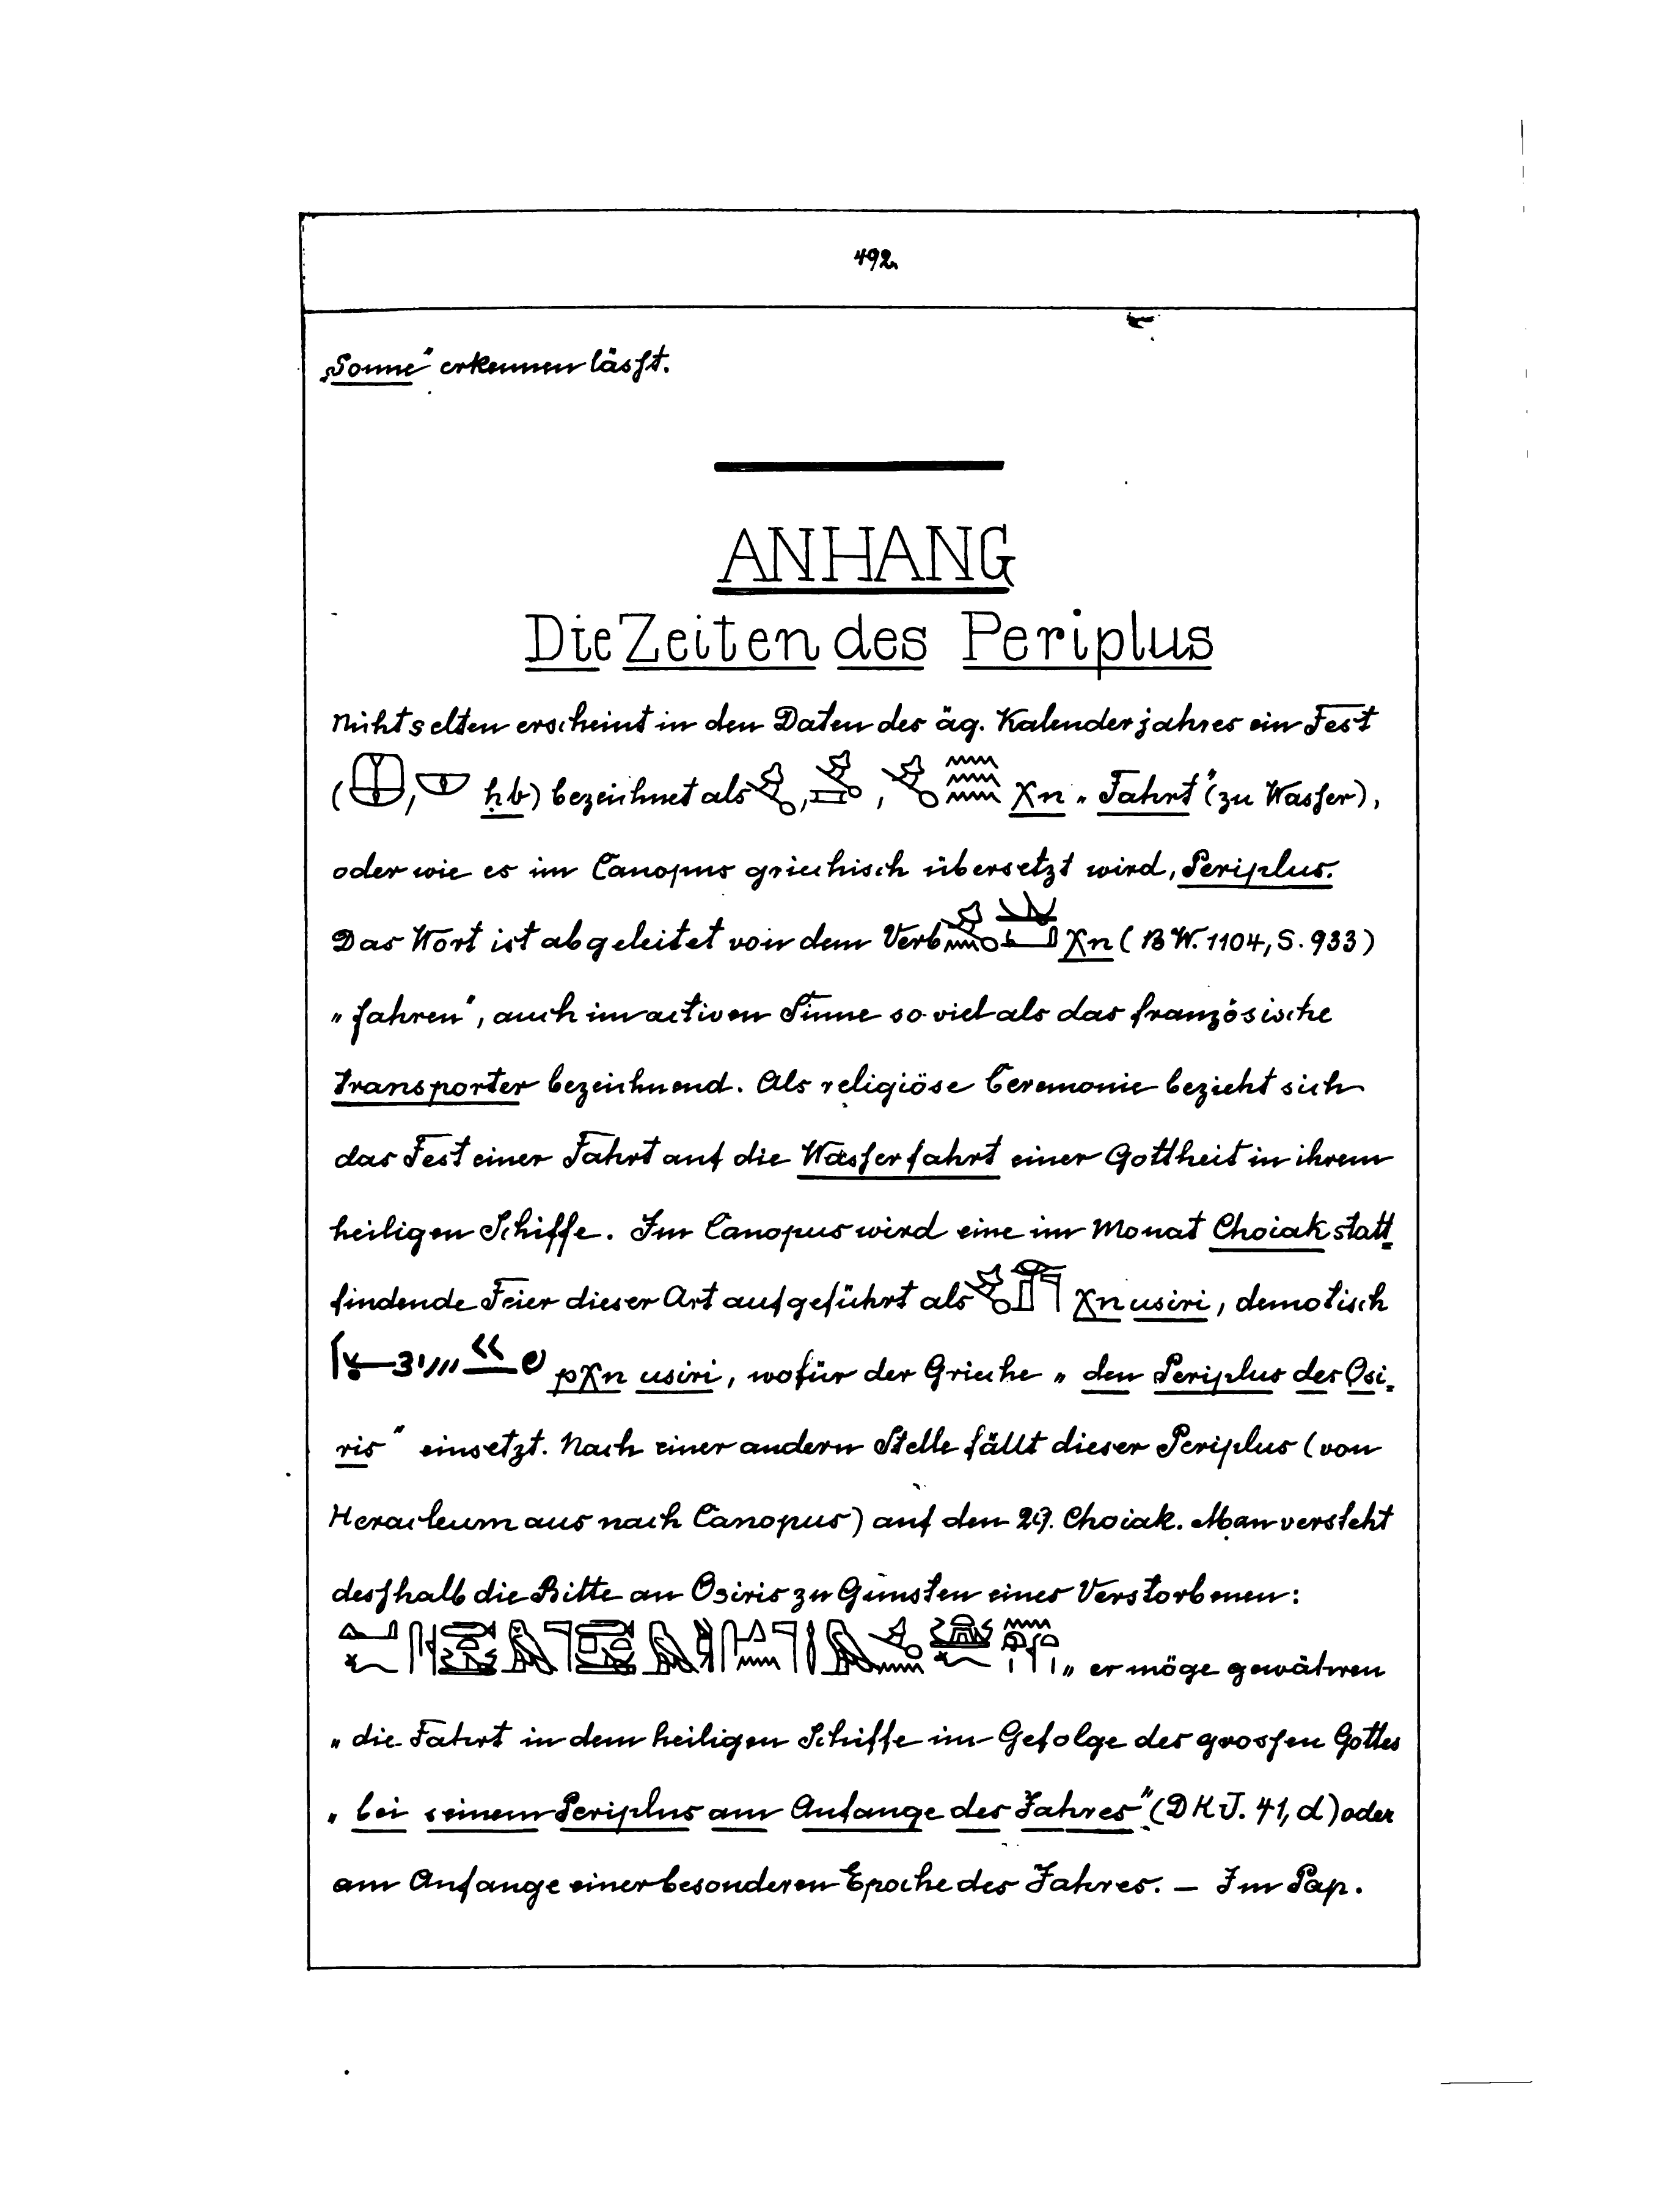 492.
„Sonne" erkennen läſst.
ANHANG
Die Zeiten des Periplus
Nicht selten erscheint in den Daten des äg. Kalenderjahres ein Fest
( , ḥb) bezeichnet als , , χn „Fahrt" (zu Wasser),
oder wie es im Canopus griechisch übersetzt wird, Periplus.
Das Wort ist abgeleitet von dem Verb χn (BW. 1104, S. 933)
„fahren", auch im activen Sinne so viel als das französische
transporter bezeichnend. Als religiöse Ceremonie bezieht sich
das Fest einer Fahrt auf die Wasserfahrt einer Gottheit in ihrem
heiligen Schiffe. Im Canopus wird eine im Monat Choiak statt=
findende Feier dieser Art aufgeführt als χn usiri, demotisch
pχn usiri, wofür der Grieche „den Periplus des Osi=
ris" einsetzt. Nach einer andern Stelle fällt dieser Periplus (von
Heracleum aus nach Canopus) auf den Choiak. Man versteht
deſshalb die Bitte an Osiris zu Gunsten eines Verstorbenen:
„er möge gewähren
„die Fahrt in dem heiligen Schiffe im Gefolge des groſsen Gottes
„bei seinem Periplus am Anfange des Jahres" (DKJ. 41, d) oder
am Anfange einer besonderen Epoche des Jahres. — Im Pap.